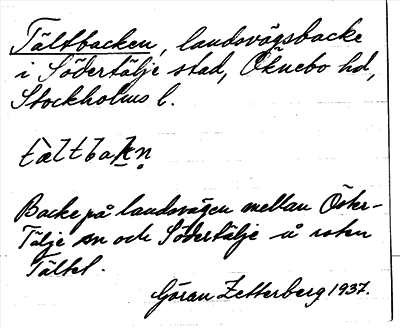 Tältbacken, landsvägsbacke
i Södertälje stad, Öknebo hd,
Stockholms l.
tæ̀ltbakn̥
Backe på landsvägen mellan Öster-
Tälje sn och Södertälje å roten
Tältet.
Göran Zetterberg 1937.